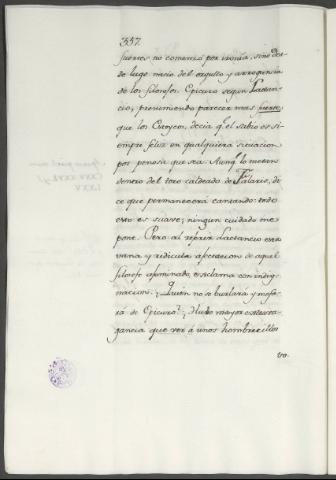 337.
fuertes no comenzó por ironía, sino des-
de luego nació del orgullo y arrogancia
de los filosofos. Epicuro segun Lactan-
cio, presumiendo parecer mas fuerte
que los Estoycos, decia q.e el sabio es si-
empre feliz en qualquiera situacion
por penosa que sea. Aunq.e lo metan
dentro del toro caldeado de Falaris, di-
ce que permanecerá cantando: todo
esto es suave; ningun cuidado me
pone. Pero al referir Lactancio esta
vana y ridicula asercion de aquel
filosofo afeminado, esclama con indig-
nacion: ¿Quién no se burlará y mofa-
rá de Epicuro? ¿Hubo mayor estrava-
gancia que ver á unos hombrecillos